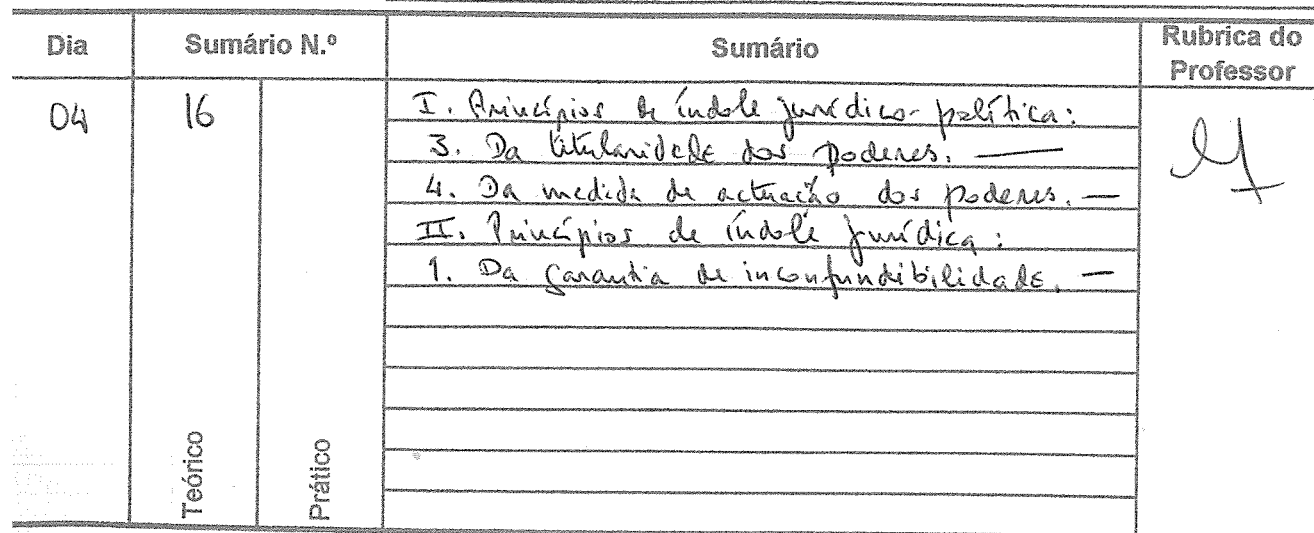 Dia
Sumário N.º
Sumário
Rubrica do
Professor
04
16
I. Princípios de índole jurídico-política:
3. Da titularidade dos poderes. —
4. Da medida de actuação dos poderes. —
II. Princípios de índole jurídica:
1. Da garantia de inconfundibilidade. —
Teórico
Prático